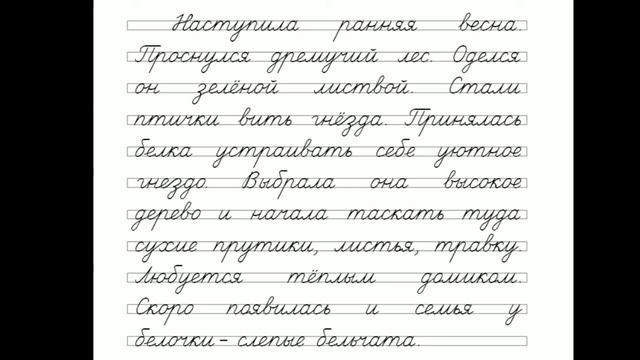 Наступила ранняя весна.
Проснулся дремучий лес. Оделся
он зелёной листвой. Стали
птички вить гнёзда. Принялась
белка устраивать себе уютное
гнездо. Выбрала она высокое
дерево и начала таскать туда
сухие прутики, листья, травку.
Любуется тёплым домиком.
Скоро появилась и семья у
белочки - слепые бельчата.